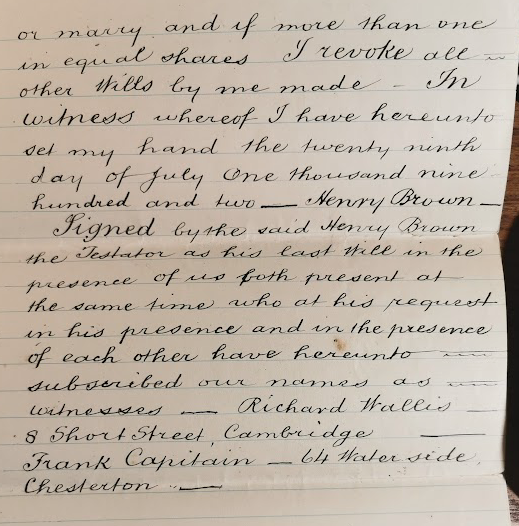 or marry and if more than one
in equal shares I revoke all
other Wills by me made - In
witness whereof I have hereunto
set my hand the twenty ninth
day of July One thousand nine
hundred and two — Henry Brown —
Signed by the said Henry Brown
the Testator as his last Will in the
presence of us both present at
the same time who at his request
in his presence and in the presence
of each other have hereunto
subscribed our names as
witnesses — Richard Wallis —
8 Short Street, Cambridge —
Frank Capitain — 64 Water side,
Chesterton . —